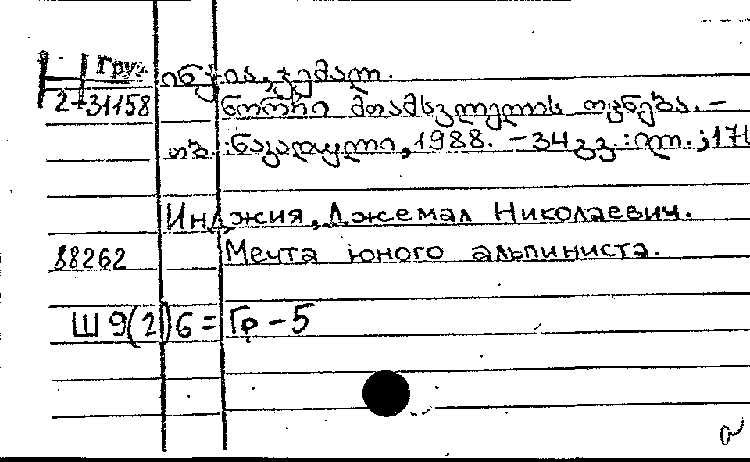 Груз
ინჯია, ჯემალ.
2-31158 ნორჩი მთამსვლელის ოცნება. –
თბ. : ნაკადული, 1988. – 34 გვ. : ილ. ; 17
Инджия, Джемал Николаевич.
88262 Мечта юного альпиниста.
Ш 9(2)6=Гр-5